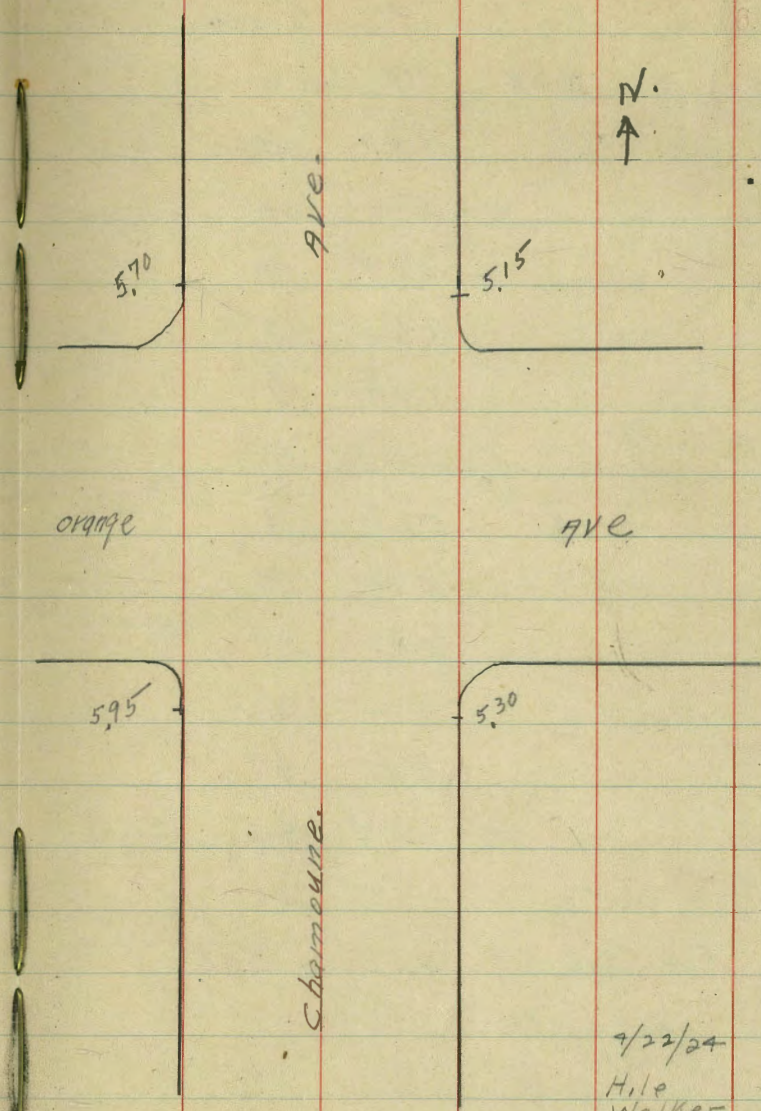 N.
Ave.
5.70
5.15
orange
Ave
5.95
5.30
Chamoune.
4/22/24
Hile
Walker